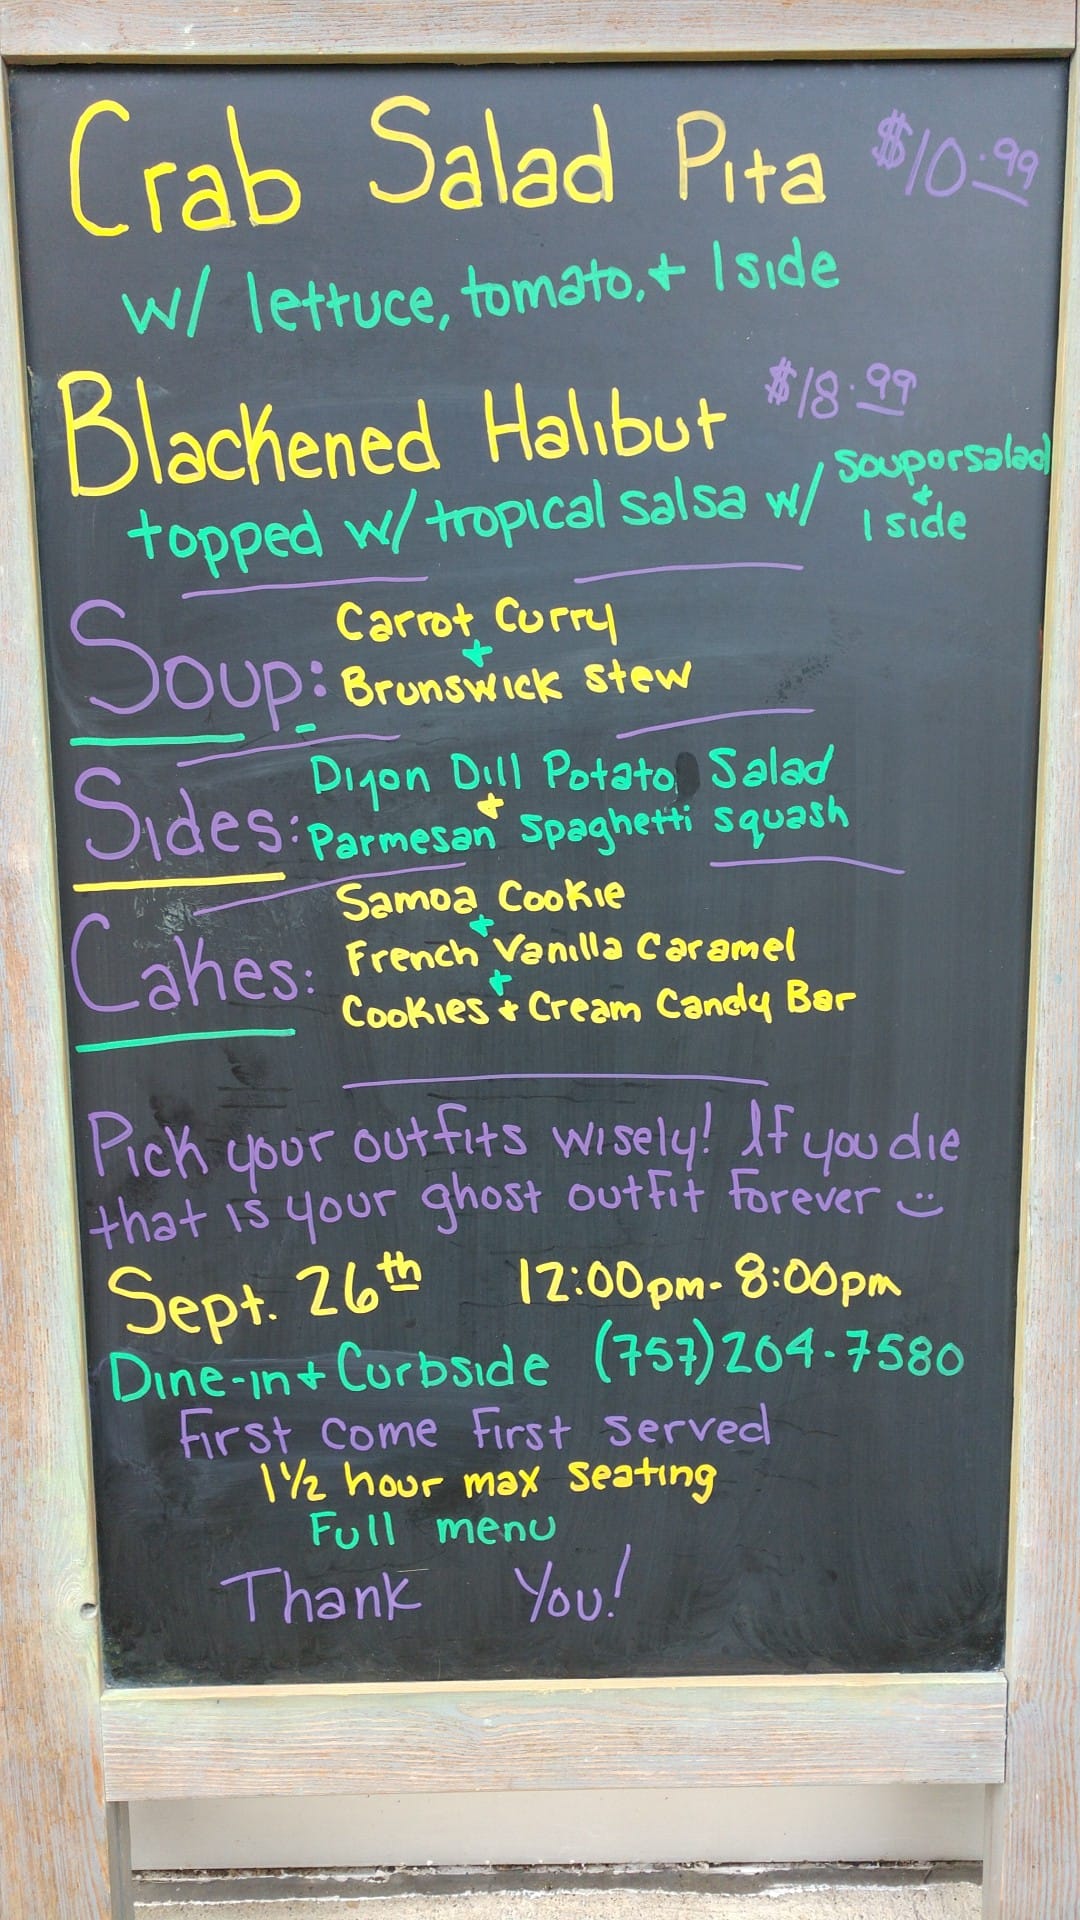 Crab Salad Pita $10.99
w/ lettuce, tomato, + 1 side
Blackened Halibut $18.99
topped w/ tropical salsa w/ soup or salad
+
1 side
Soup: Carrot Curry
+
Brunswick Stew
Sides: Dijon Dill Potato Salad
+
Parmesan Spaghetti Squash
Cakes: Samoa Cookie
+
French Vanilla Caramel
+
Cookies + Cream Candy Bar
Pick your outfits wisely! If you die
that is your ghost outfit forever :)
Sept. 26th 12:00pm - 8:00pm
Dine-in + Curbside (757) 204-7580
First come First served
1 1/2 hour max seating
Full menu
Thank You!